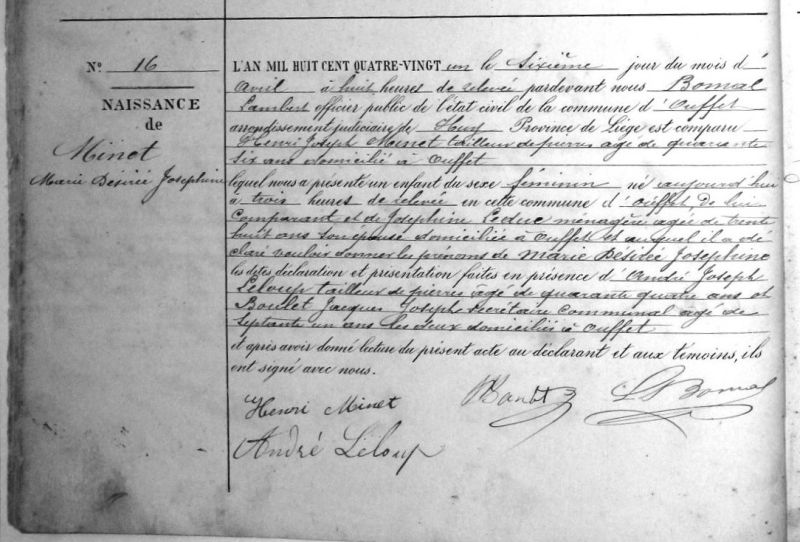 N° 16
NAISSANCE
de
Minet
Marie Désirée Josephine
L'AN MIL HUIT CENT QUATRE-VINGT un le Sixième jour du mois d'
Avril à huit heures de relevée pardevant nous Bomal
Lambert officier public de l'état civil de la commune d'Ouffet
arrondissement judiciaire de Huy Province de Liège est comparu
Henri Joseph Minet tailleur de pierres âgé de quarante
six ans domicilié à Ouffet
lequel nous a présenté un enfant du sexe féminin né aujourd'hui
à trois heures de relevée en cette commune d'Ouffet de lui
Comparant et de Joséphine Leduc ménagère agée de trente
huit ans son épouse domiciliée à Ouffet et auquel il a dé
claré vouloir donner les prénoms de Marie Désirée Josephine
les dites déclaration et présentation faites en présence d'André Joseph
Leloup tailleur de pierres âgé de quarante quatre ans et
Boulet Jacques Joseph secrétaire Communal agé de
Septante un ans les deux domiciliés à Ouffet
et après avoir donné lecture du présent acte au déclarant et aux témoins, ils
ont signé avec nous.
Henri Minet
L Bomal
André Leloup